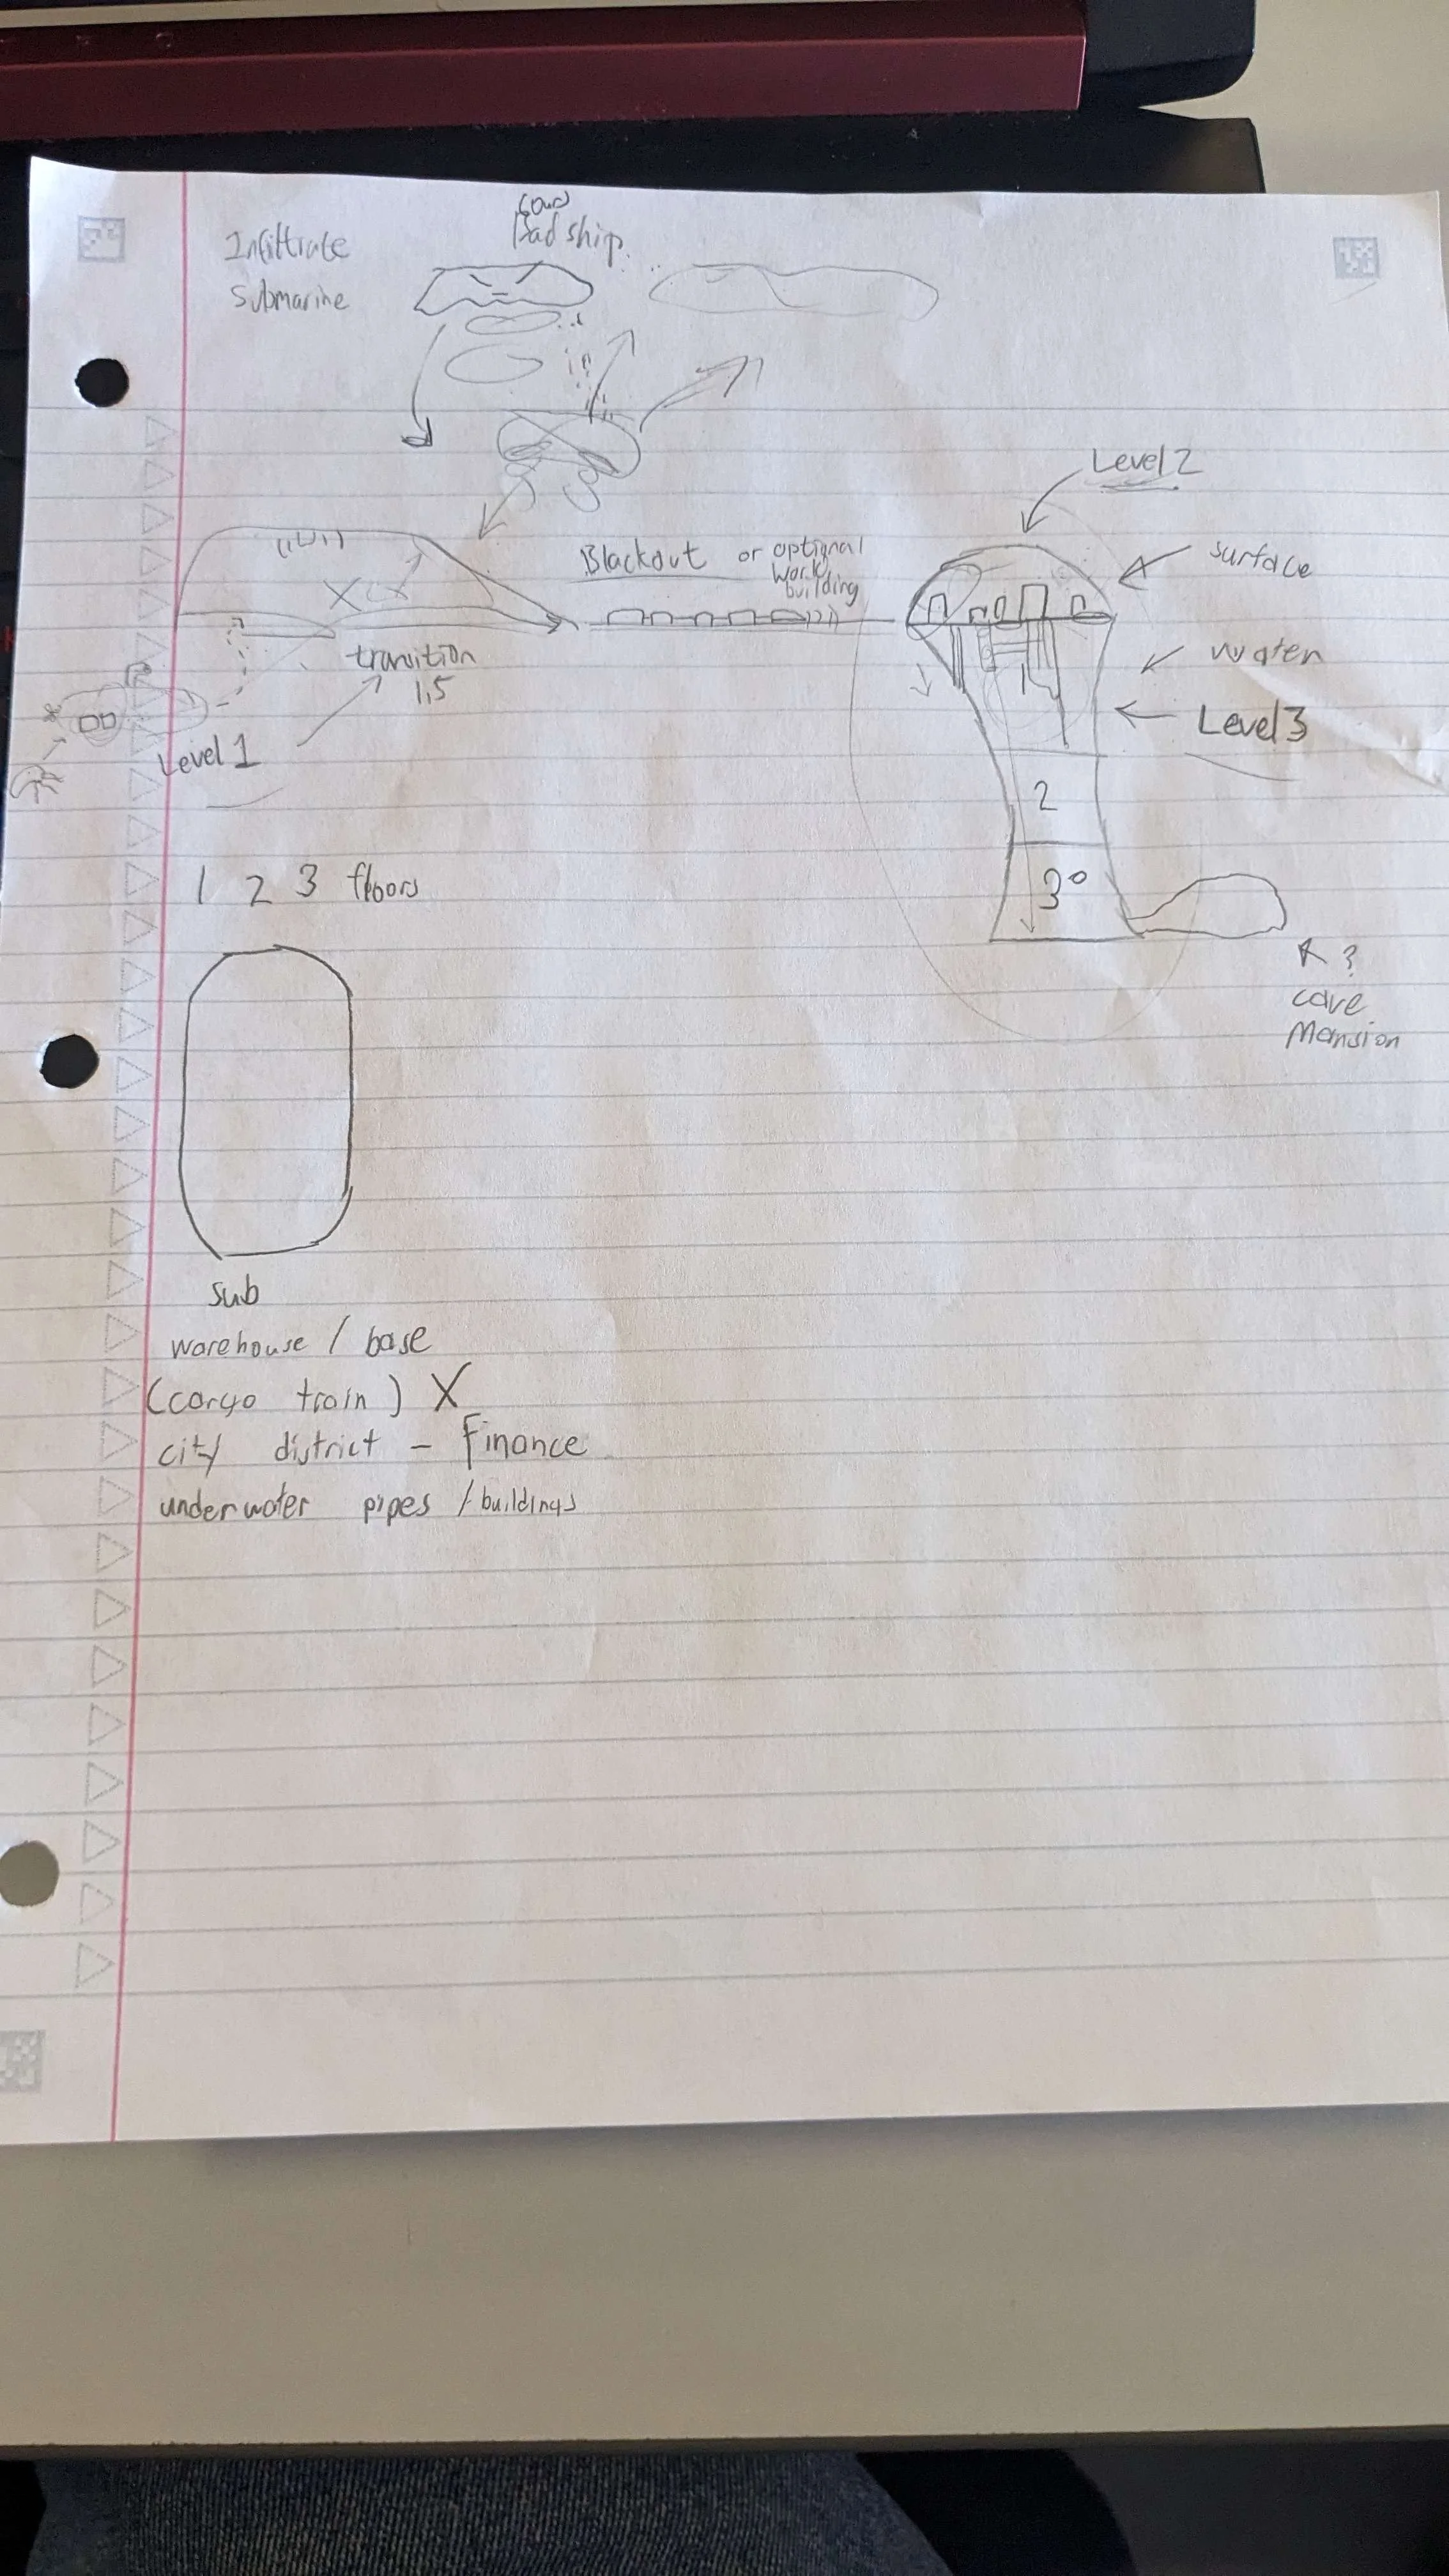 Bad ship
Infiltrate
Submarine
Level 2
Blackout or optional
work
building
surface
transition
1,5
water
Level 1
Level 3
2
1 2 3 floors
3
?
cave
Mansion
sub
warehouse / base
(cargo train) X
city district - Finance
underwater pipes / buildings